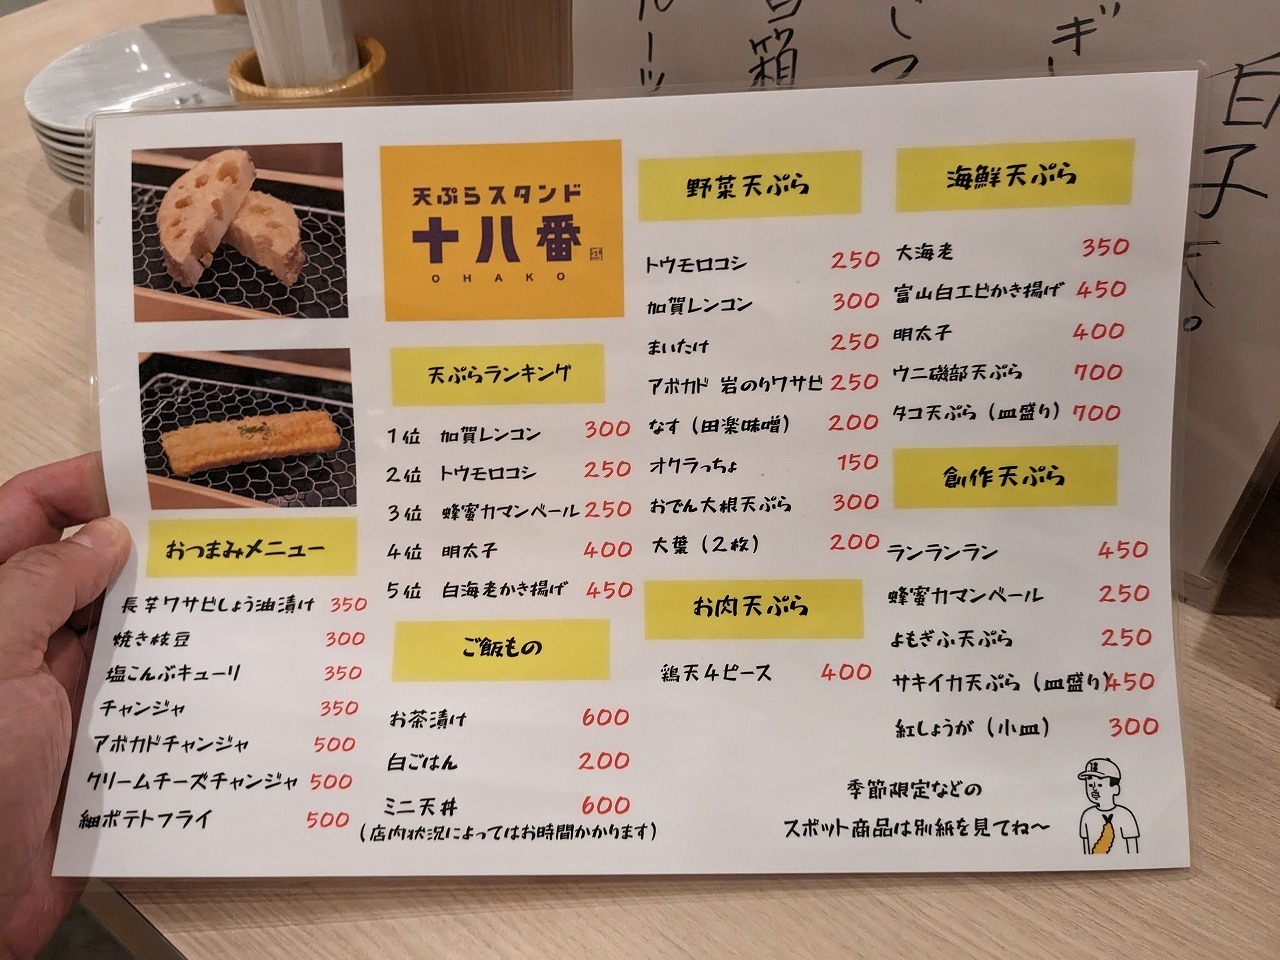 天ぷらスタンド
十八番
OHAKO
天ぷらランキング
1位 加賀レンコン 300
2位 トウモロコシ 250
3位 蜂蜜カマンベール 250
4位 明太子 400
5位 白海老かき揚げ 450
おつまみメニュー
長芋ワサビしょう油漬け 350
焼き枝豆 300
塩こんぶキューリ 350
チャンジャ 350
アボカドチャンジャ 500
クリームチーズチャンジャ 500
細ポテトフライ 500
ご飯もの
お茶漬け 600
白ごはん 200
ミニ天丼 600
(店内状況によってはお時間かかります)
野菜天ぷら
トウモロコシ 250
加賀レンコン 300
まいたけ 250
アボカド 岩のりワサビ 250
なす(田楽味噌) 200
オクラっちょ 150
おでん大根天ぷら 300
大葉(2枚) 200
お肉天ぷら
鶏天4ピース 400
海鮮天ぷら
大海老 350
富山白エビかき揚げ 450
明太子 400
ウニ磯部天ぷら 700
タコ天ぷら(皿盛り) 700
創作天ぷら
ランランラン 450
蜂蜜カマンベール 250
よもぎふ天ぷら 250
サキイカ天ぷら(皿盛り) 450
紅しょうが(小皿) 300
季節限定などの
スポット商品は別紙を見てね〜
白子天。